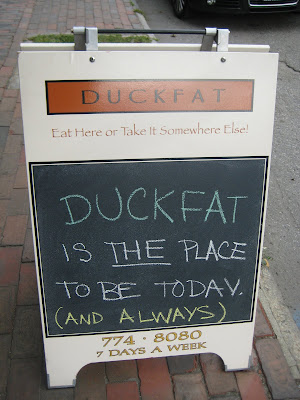 DUCKFAT
Eat Here or Take It Somewhere Else!
DUCKFAT
IS THE PLACE
TO BE TODAY.
(AND ALWAYS)
774 · 8080
7 DAYS A WEEK